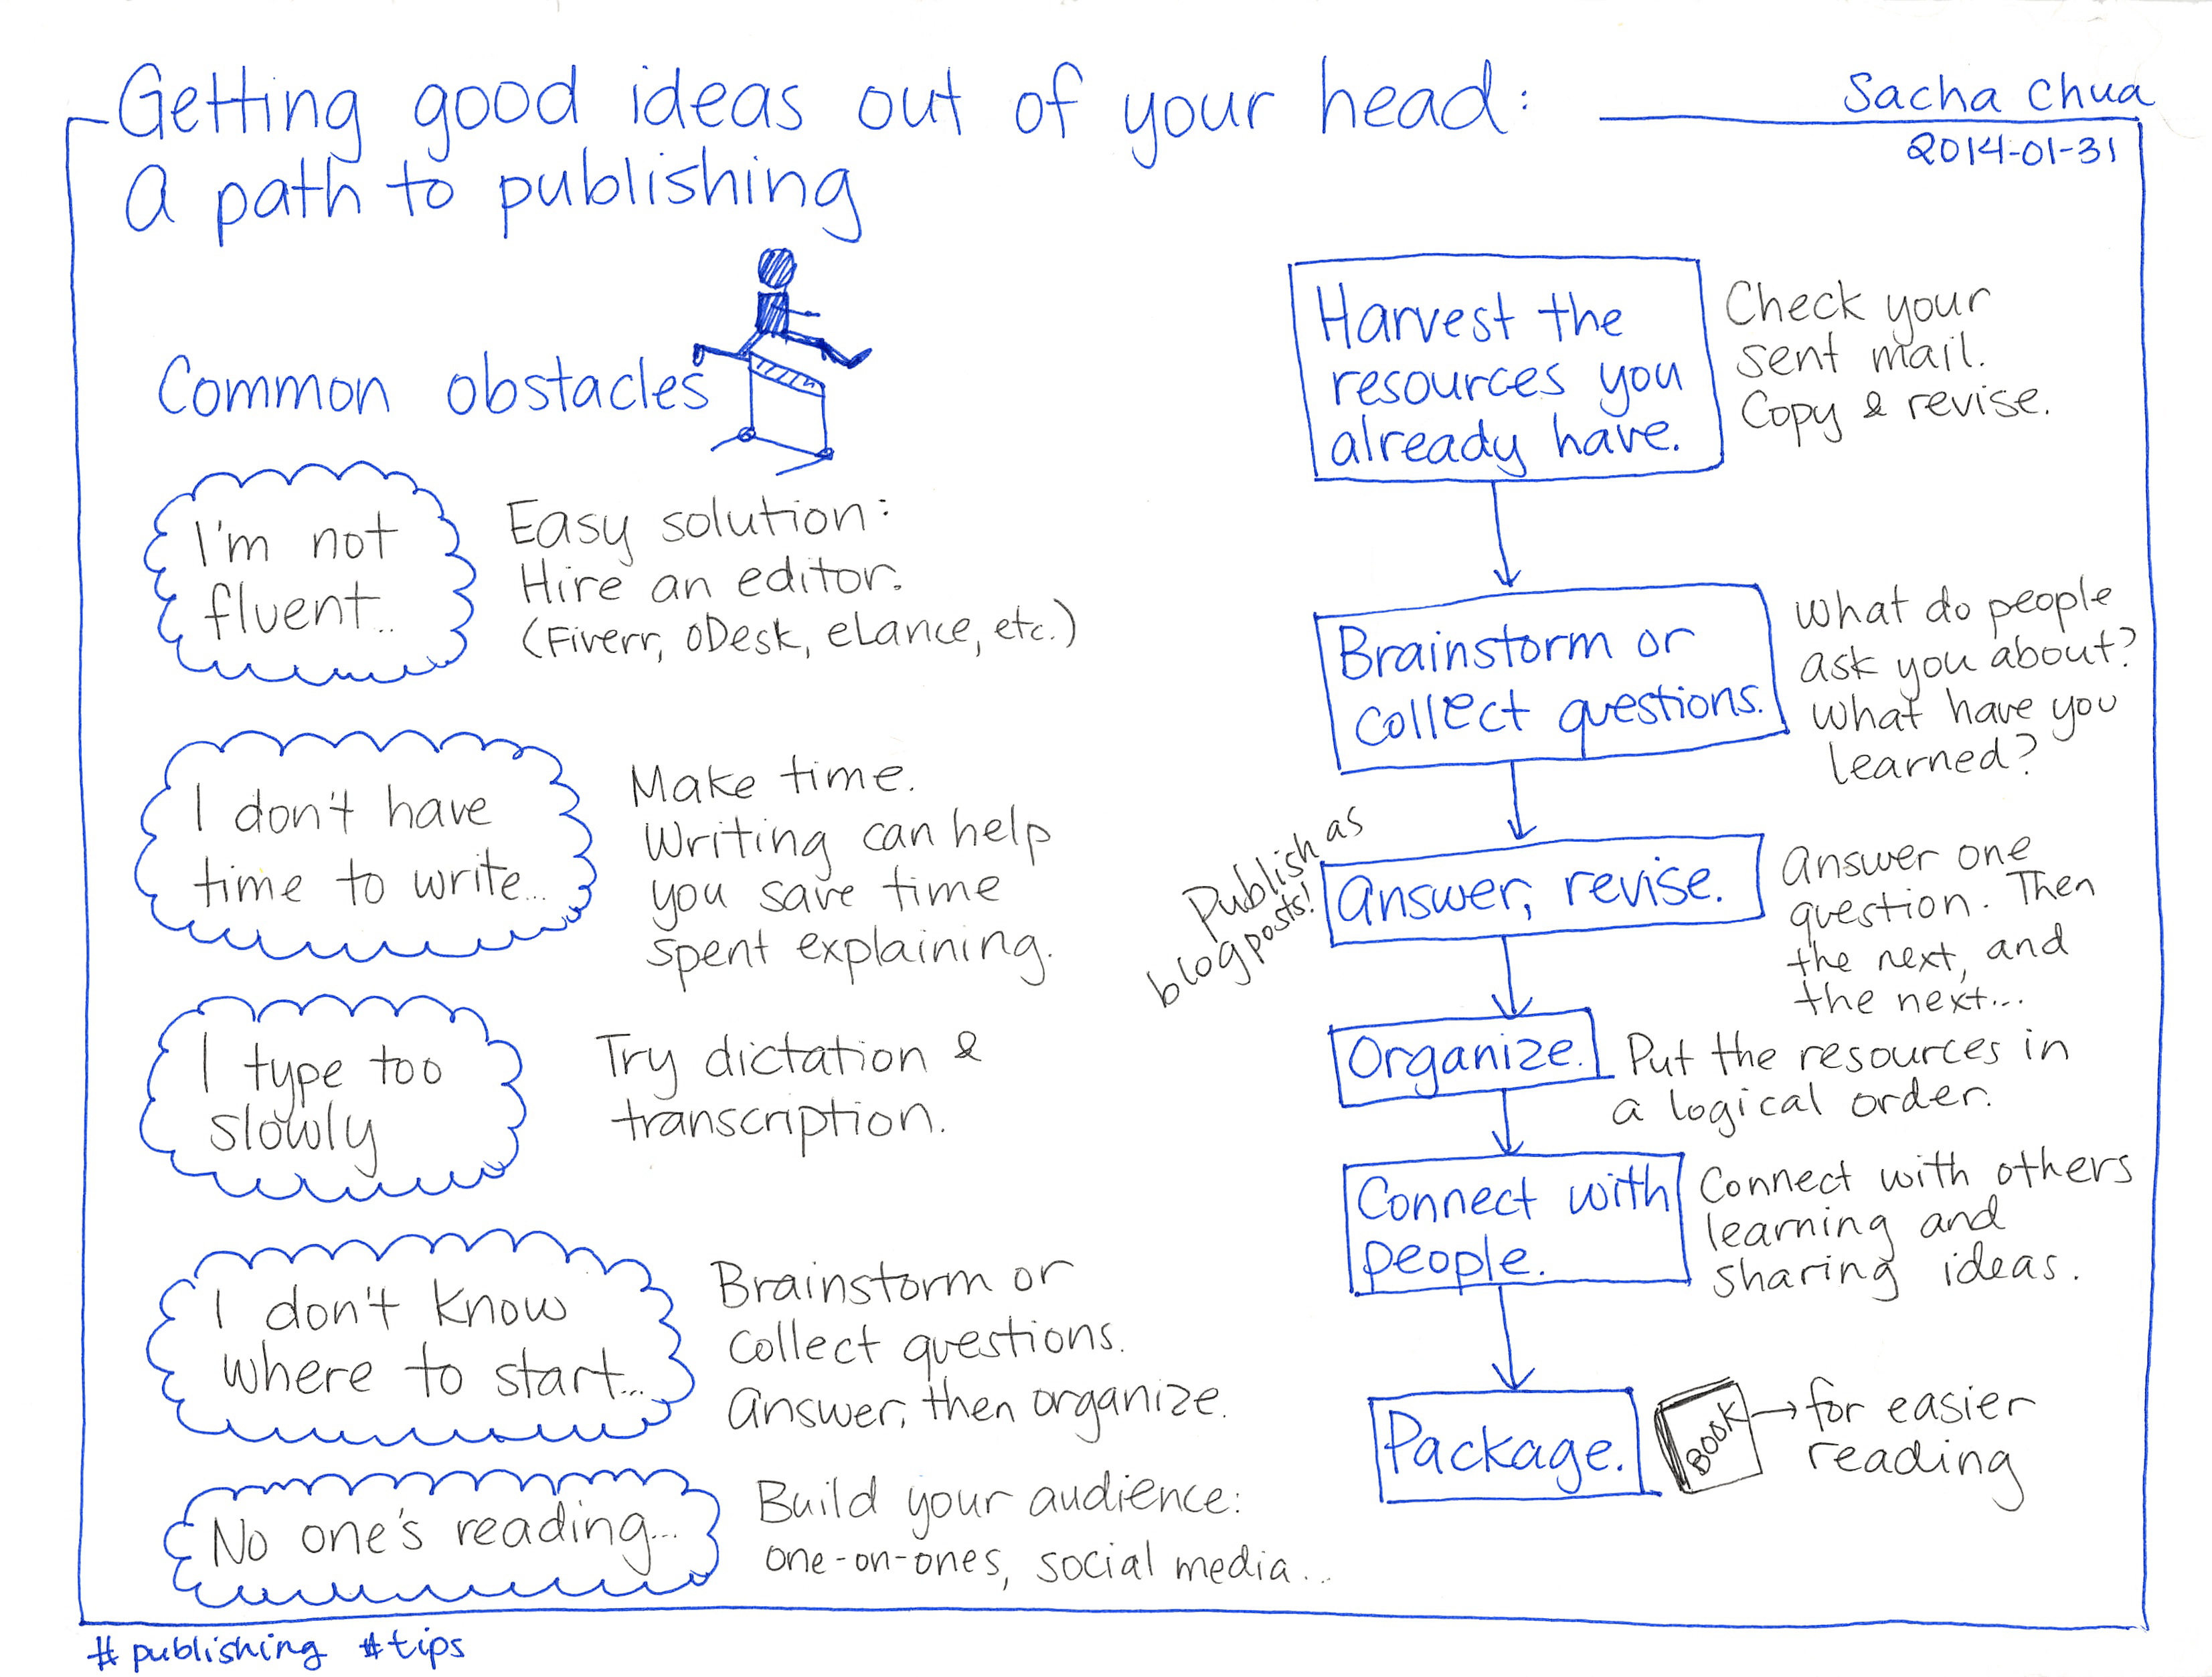 Getting good ideas out of your head:
a path to publishing
Sacha Chua
2014-01-31
Common obstacles
I'm not
fluent...
Easy solution:
Hire an editor.
(Fiverr, oDesk, eLance, etc.)
I don't have
time to write...
Make time.
Writing can help
you save time
spent explaining.
I type too
slowly
Try dictation &
transcription.
I don't know
where to start...
Brainstorm or
collect questions.
Answer, then organize.
No one's reading...
Build your audience:
one-on-ones, social media...
Harvest the
resources you
already have.
Check your
sent mail.
Copy & revise.
Brainstorm or
collect questions.
What do people
ask you about?
What have you
learned?
Publish as
blog posts!
Answer, revise.
Answer one
question. Then
the next, and
the next...
Organize.
Put the resources in
a logical order.
Connect with
people.
Connect with others
learning and
sharing ideas.
Package.
BOOK
for easier
reading
#publishing #tips